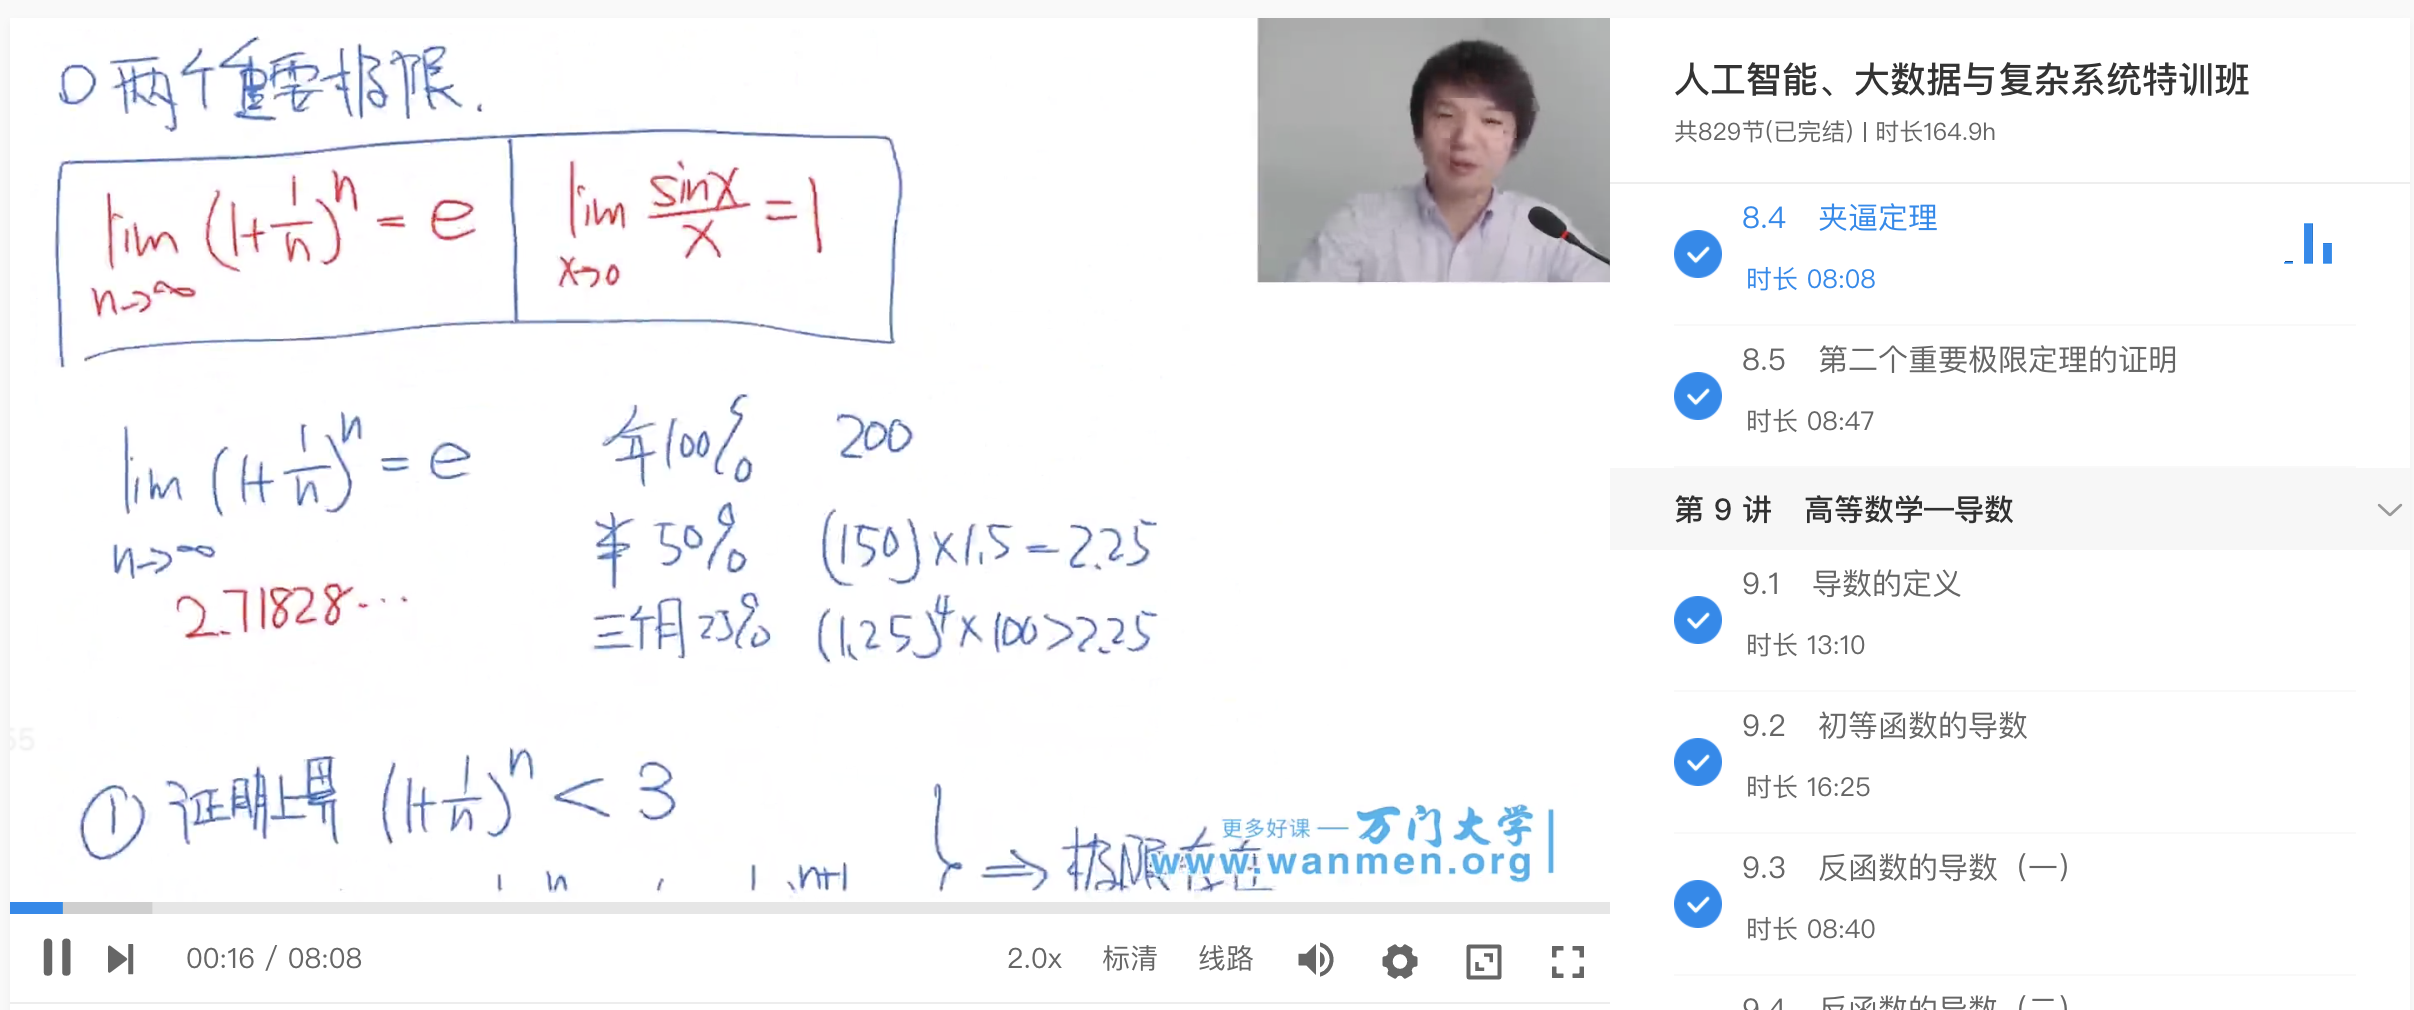 两个重要极限.
lim (1+1/n)^n = e
n→∞
lim sinx/x = 1
x→0
lim (1+1/n)^n = e
n→∞
2.71828...
年100% 200
半 50% (150)×1.5=2.25
三个月25% (1.25)^4×100>2.25
① 证明上界 (1+1/n)^n < 3
⇒ 极限存在
更多好课 — 万门大学
www.wanmen.org
00:16 / 08:08
2.0x 标清 线路
人工智能、大数据与复杂系统特训班
共829节(已完结) | 时长164.9h
8.4 夹逼定理
时长 08:08
8.5 第二个重要极限定理的证明
时长 08:47
第 9 讲 高等数学—导数
9.1 导数的定义
时长 13:10
9.2 初等函数的导数
时长 16:25
9.3 反函数的导数（一）
时长 08:40
9.4 反函数的导数（二）